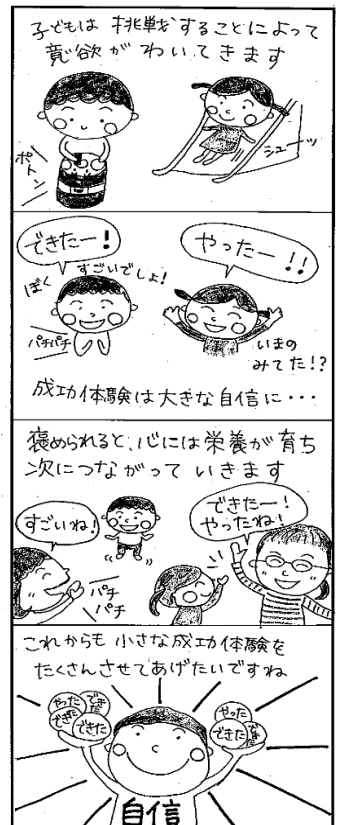 子どもは 挑戦することによって
意欲が わいてきます
ポトン
シューッ
できたー!
やったー!!
ぼく すごいでしょ!
パチパチ
いまの
みてた!?
成功体験は大きな自信に・・・
褒められると、心には栄養が育ち
次につながって いきます
すごいね!
できたー!
やったね!
パチ
パチ
これからも 小さな成功体験を
たくさんさせてあげたいですね
やった
できた
できた
できた
やった
できた
自信